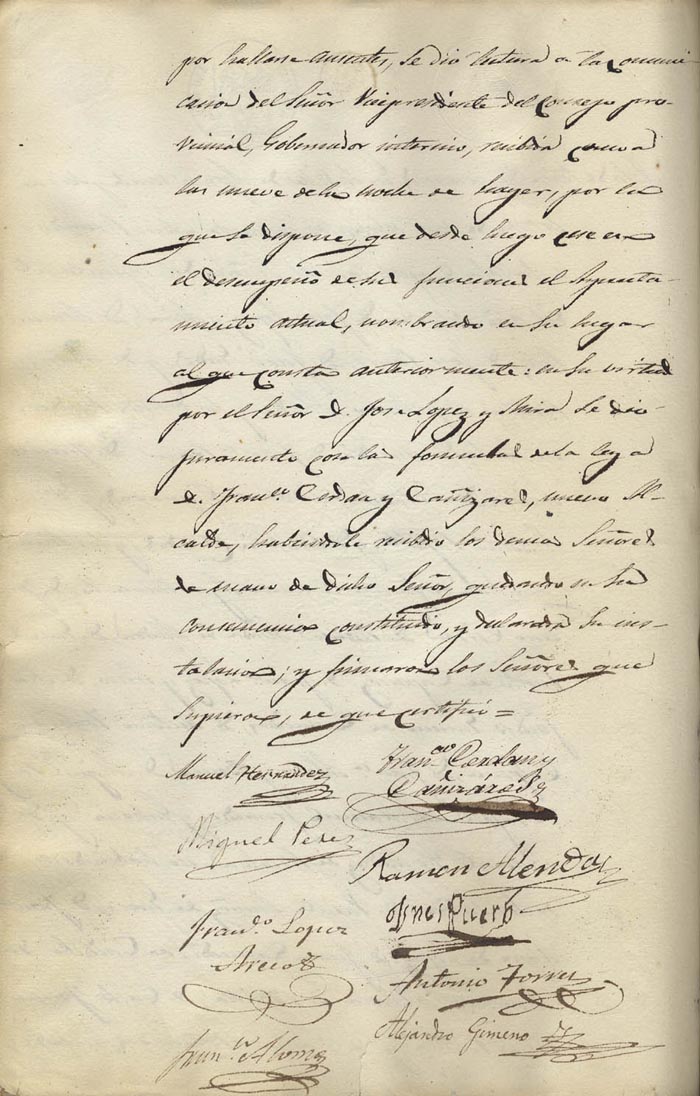 por hallarse ausentes, se dio lectura a la comuni-
cacion del Señor Vicepresidente del consejo pro-
vincial, Gobernador interino, recibida
las nueve de la noche de hayer, por la
que se dispone, que desde luego cese en
el desempeño de sus funciones el Ayunta-
miento actual, nombrando en su lugar
al que consta anteriormente: en su virtud
por el Señor D. Jose Lopez y Mira se dio
juramento con las formulas de la ley a
D. Franco. Cerdan y Cañizares, nuevo Al-
calde, habiendole recibido los demas Señores
de mano de dicho Señor, quedando en su
consecuencia constituido, y declarada su ins-
talacion; y firmaron los Señores que
supieron, de que certifico =
Manuel Hernandez
Franco. Cerdan y
Cañizares
Miguel Perez
Ramon
Franco. Lopez
Antonio Torres
Alejandro Gimeno